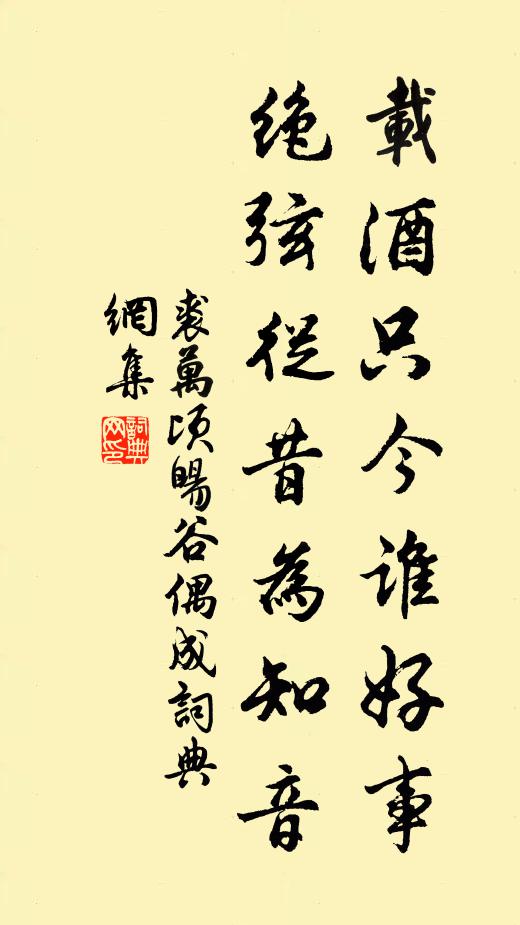 載酒只今誰好事
絶弦從昔為知音
裘萬頃暘谷偶成詞典
網集
詞典
网印